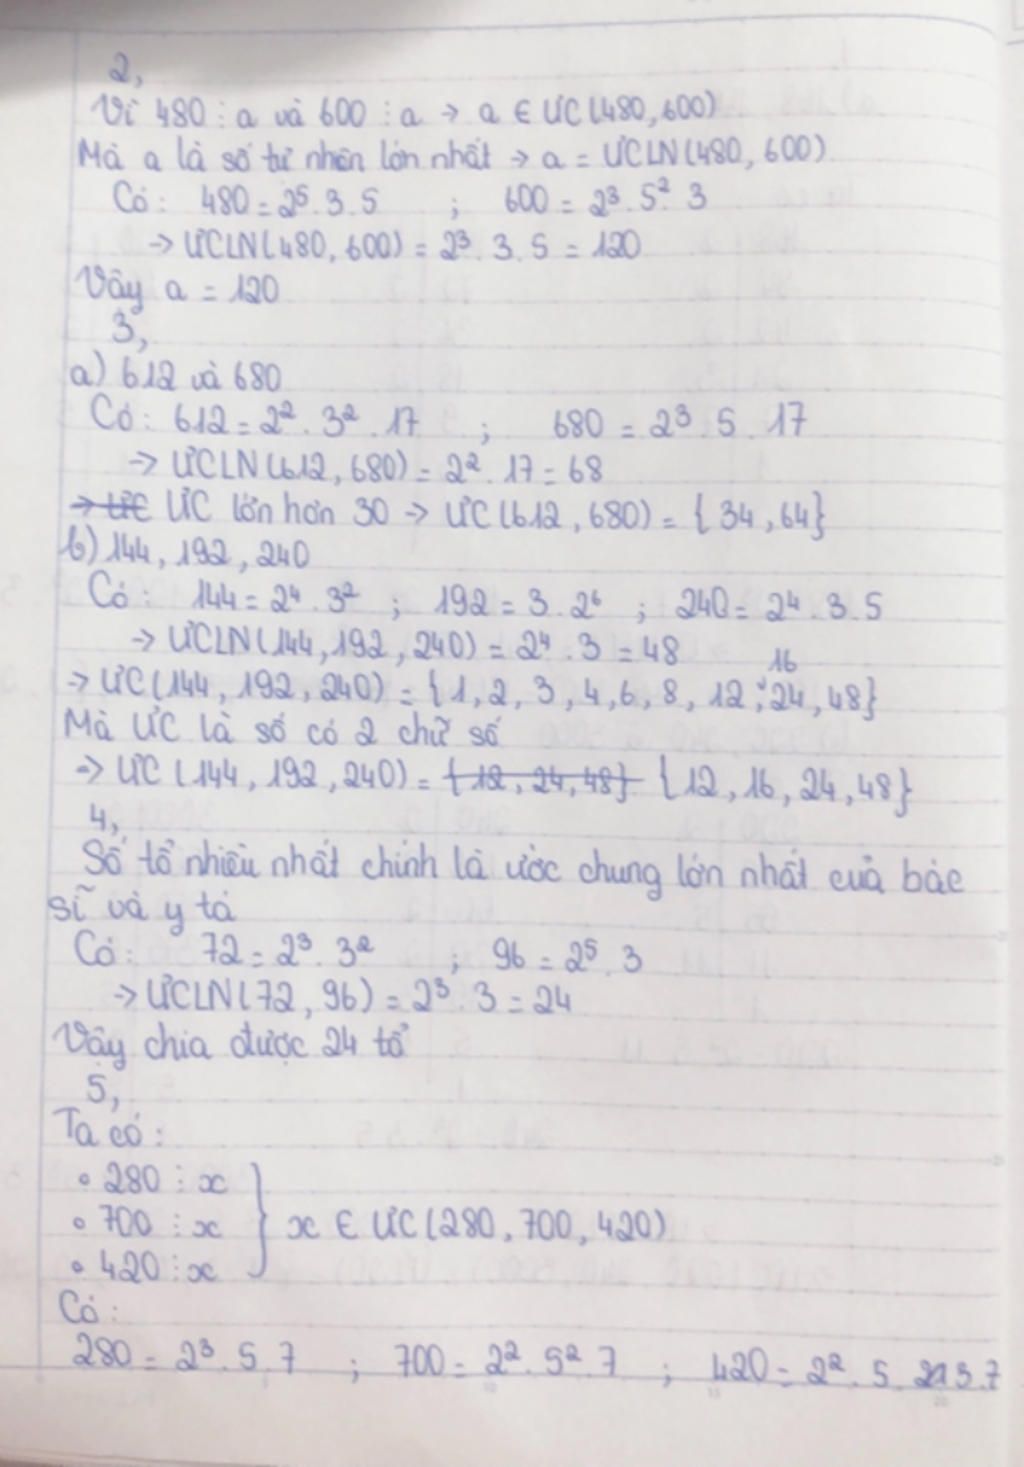 2,
Vì 480 ⋮ a và 600 ⋮ a → a ∈ ƯC(480, 600)
Mà a là số tự nhiên lớn nhất → a = ƯCLN(480, 600)
Có: 480 = 2⁵. 3. 5 ; 600 = 2³. 5². 3
→ ƯCLN(480, 600) = 2³. 3. 5 = 120
Vậy a = 120
3,
a) 612 và 680
Có: 612 = 2². 3². 17 ; 680 = 2³. 5. 17
→ ƯCLN(612, 680) = 2². 17 = 68
→ ƯC ƯC lớn hơn 30 → ƯC(612, 680) = { 34, 64}
b) 144, 192, 240
Có: 144 = 2⁴. 3² ; 192 = 3. 2⁶ ; 240 = 2⁴. 3. 5
→ ƯCLN(144, 192, 240) = 2⁴. 3 = 48
16
→ ƯC(144, 192, 240) = {1, 2, 3, 4, 6, 8, 12, 24, 48}
Mà ƯC là số có 2 chữ số
→ ƯC (144, 192, 240) = {12, 24, 48} {12, 16, 24, 48}
4,
Số tổ nhiều nhất chính là ước chung lớn nhất của bác
sĩ và y tá
Có: 72 = 2³. 3² ; 96 = 2⁵. 3
→ ƯCLN(72, 96) = 2³. 3 = 24
Vậy chia được 24 tổ
5,
Ta có:
• 280 ⋮ x
• 700 ⋮ x } x ∈ ƯC(280, 700, 420)
• 420 ⋮ x
Có:
280 = 2³. 5. 7 ; 700 = 2². 5². 7 ; 420 = 2². 5. 3. 7